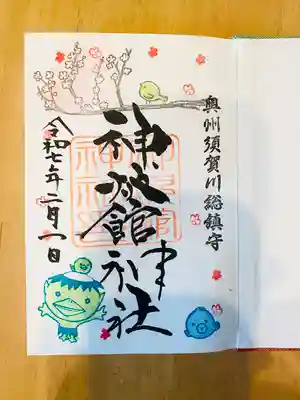 奥州須賀川総鎮守
神炊館神社
令和七年二月一日